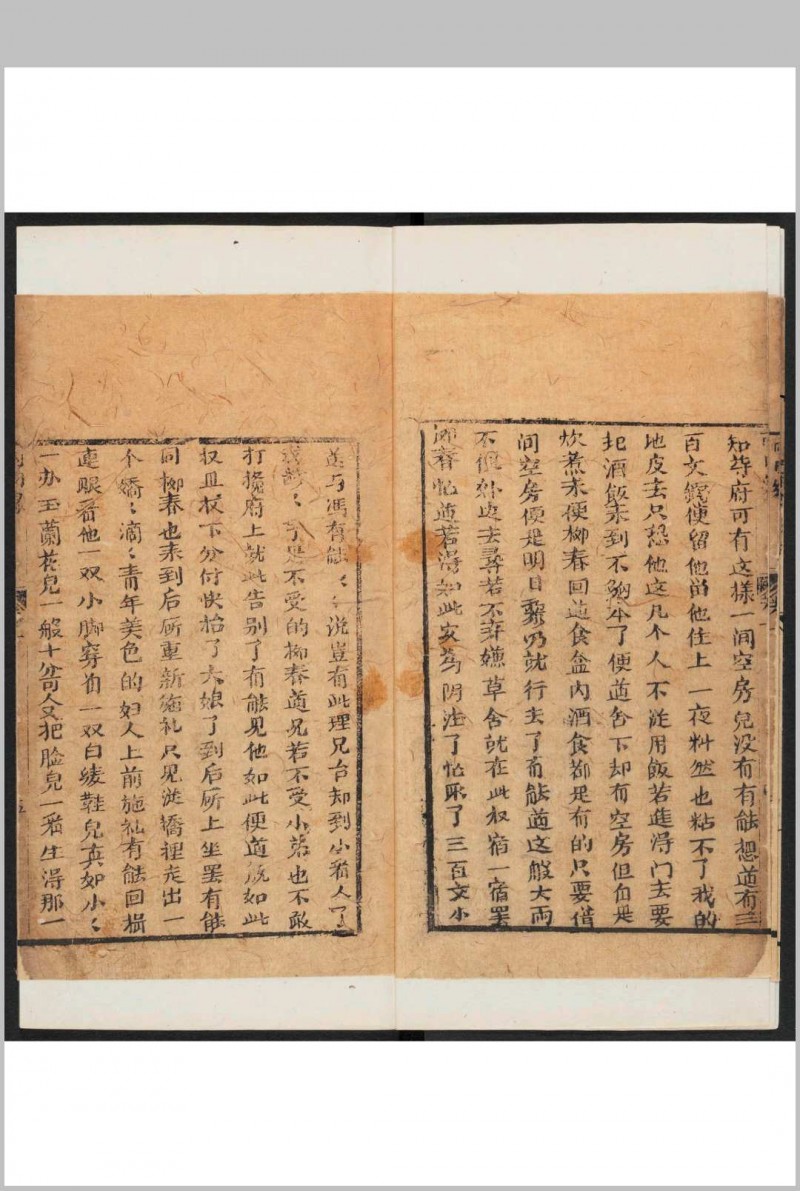 知尊府可有这様一间空房兒没有有能想道有三
百文錢使留他畄他住上一夜料然也粘不了我的
地皮去只恐他这几个人不浲用飯若進淂门去要
起酒飯来到不勾本了便道舍下却有空房但自是
炊煮未便柳春回道食盆内酒食都是有的只要借
间空房便是明日
就行去了有能道这般大雨
不
外
去尋若不弃嫌草舍就在此权宿一宿罢
柳春忙道若淂如此
三百文小
送与馮有能〻〻说豈有此理兄台却到小看人了
于是不受的柳春道兄若不受小弟也不敢
打搅府上就此告别了有能见他如此便道既如此
权且权下分付快抬了大娘了到后㕔上坐罢有能
同柳春也来到后㕔重新施礼只见
轎裡走出一
个嬌〻滴〻青年美色的妇人上前施礼有能回揖
連眼看他一双小脚穿着一双白綾鞋兒真如小〻
一办玉蘭花兒一般十分可人又把脸兒一看生得那一